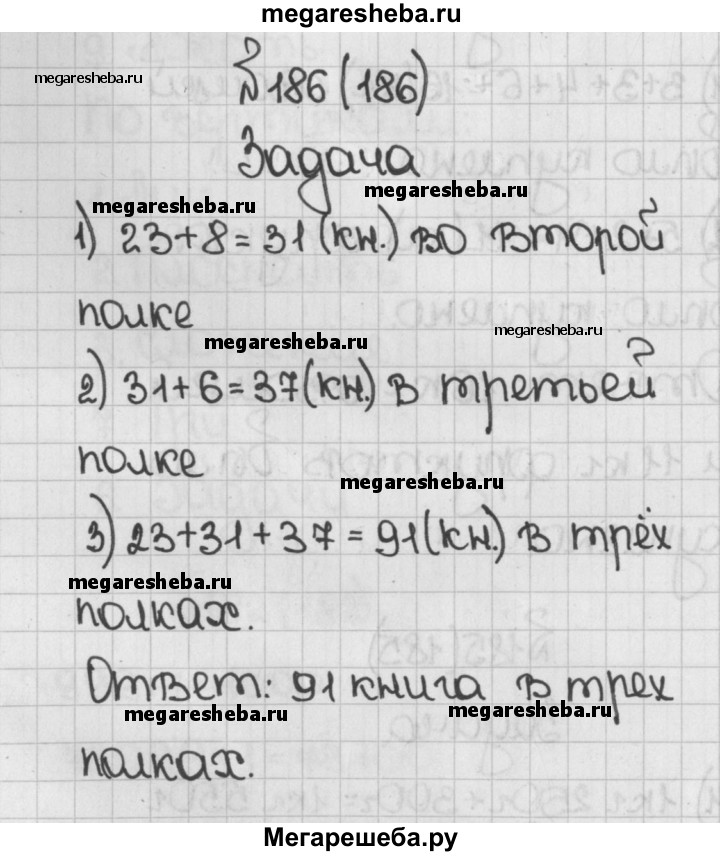 megaresheba.ru
№186 (186)
megaresheba.ru
Задача
megaresheba.ru
megaresheba.ru
1) 23+8=31(кн.) во второй
полке
megaresheba.ru
megaresheba.ru
2) 31+6=37(кн.) в третьей
полке
megaresheba.ru
3) 23+31+37=91(кн.) в трёх
megaresheba.ru
полках.
Ответ: 91 книга в трех
megaresheba.ru
megaresheba.ru
полках.
Мегарешеба.ру